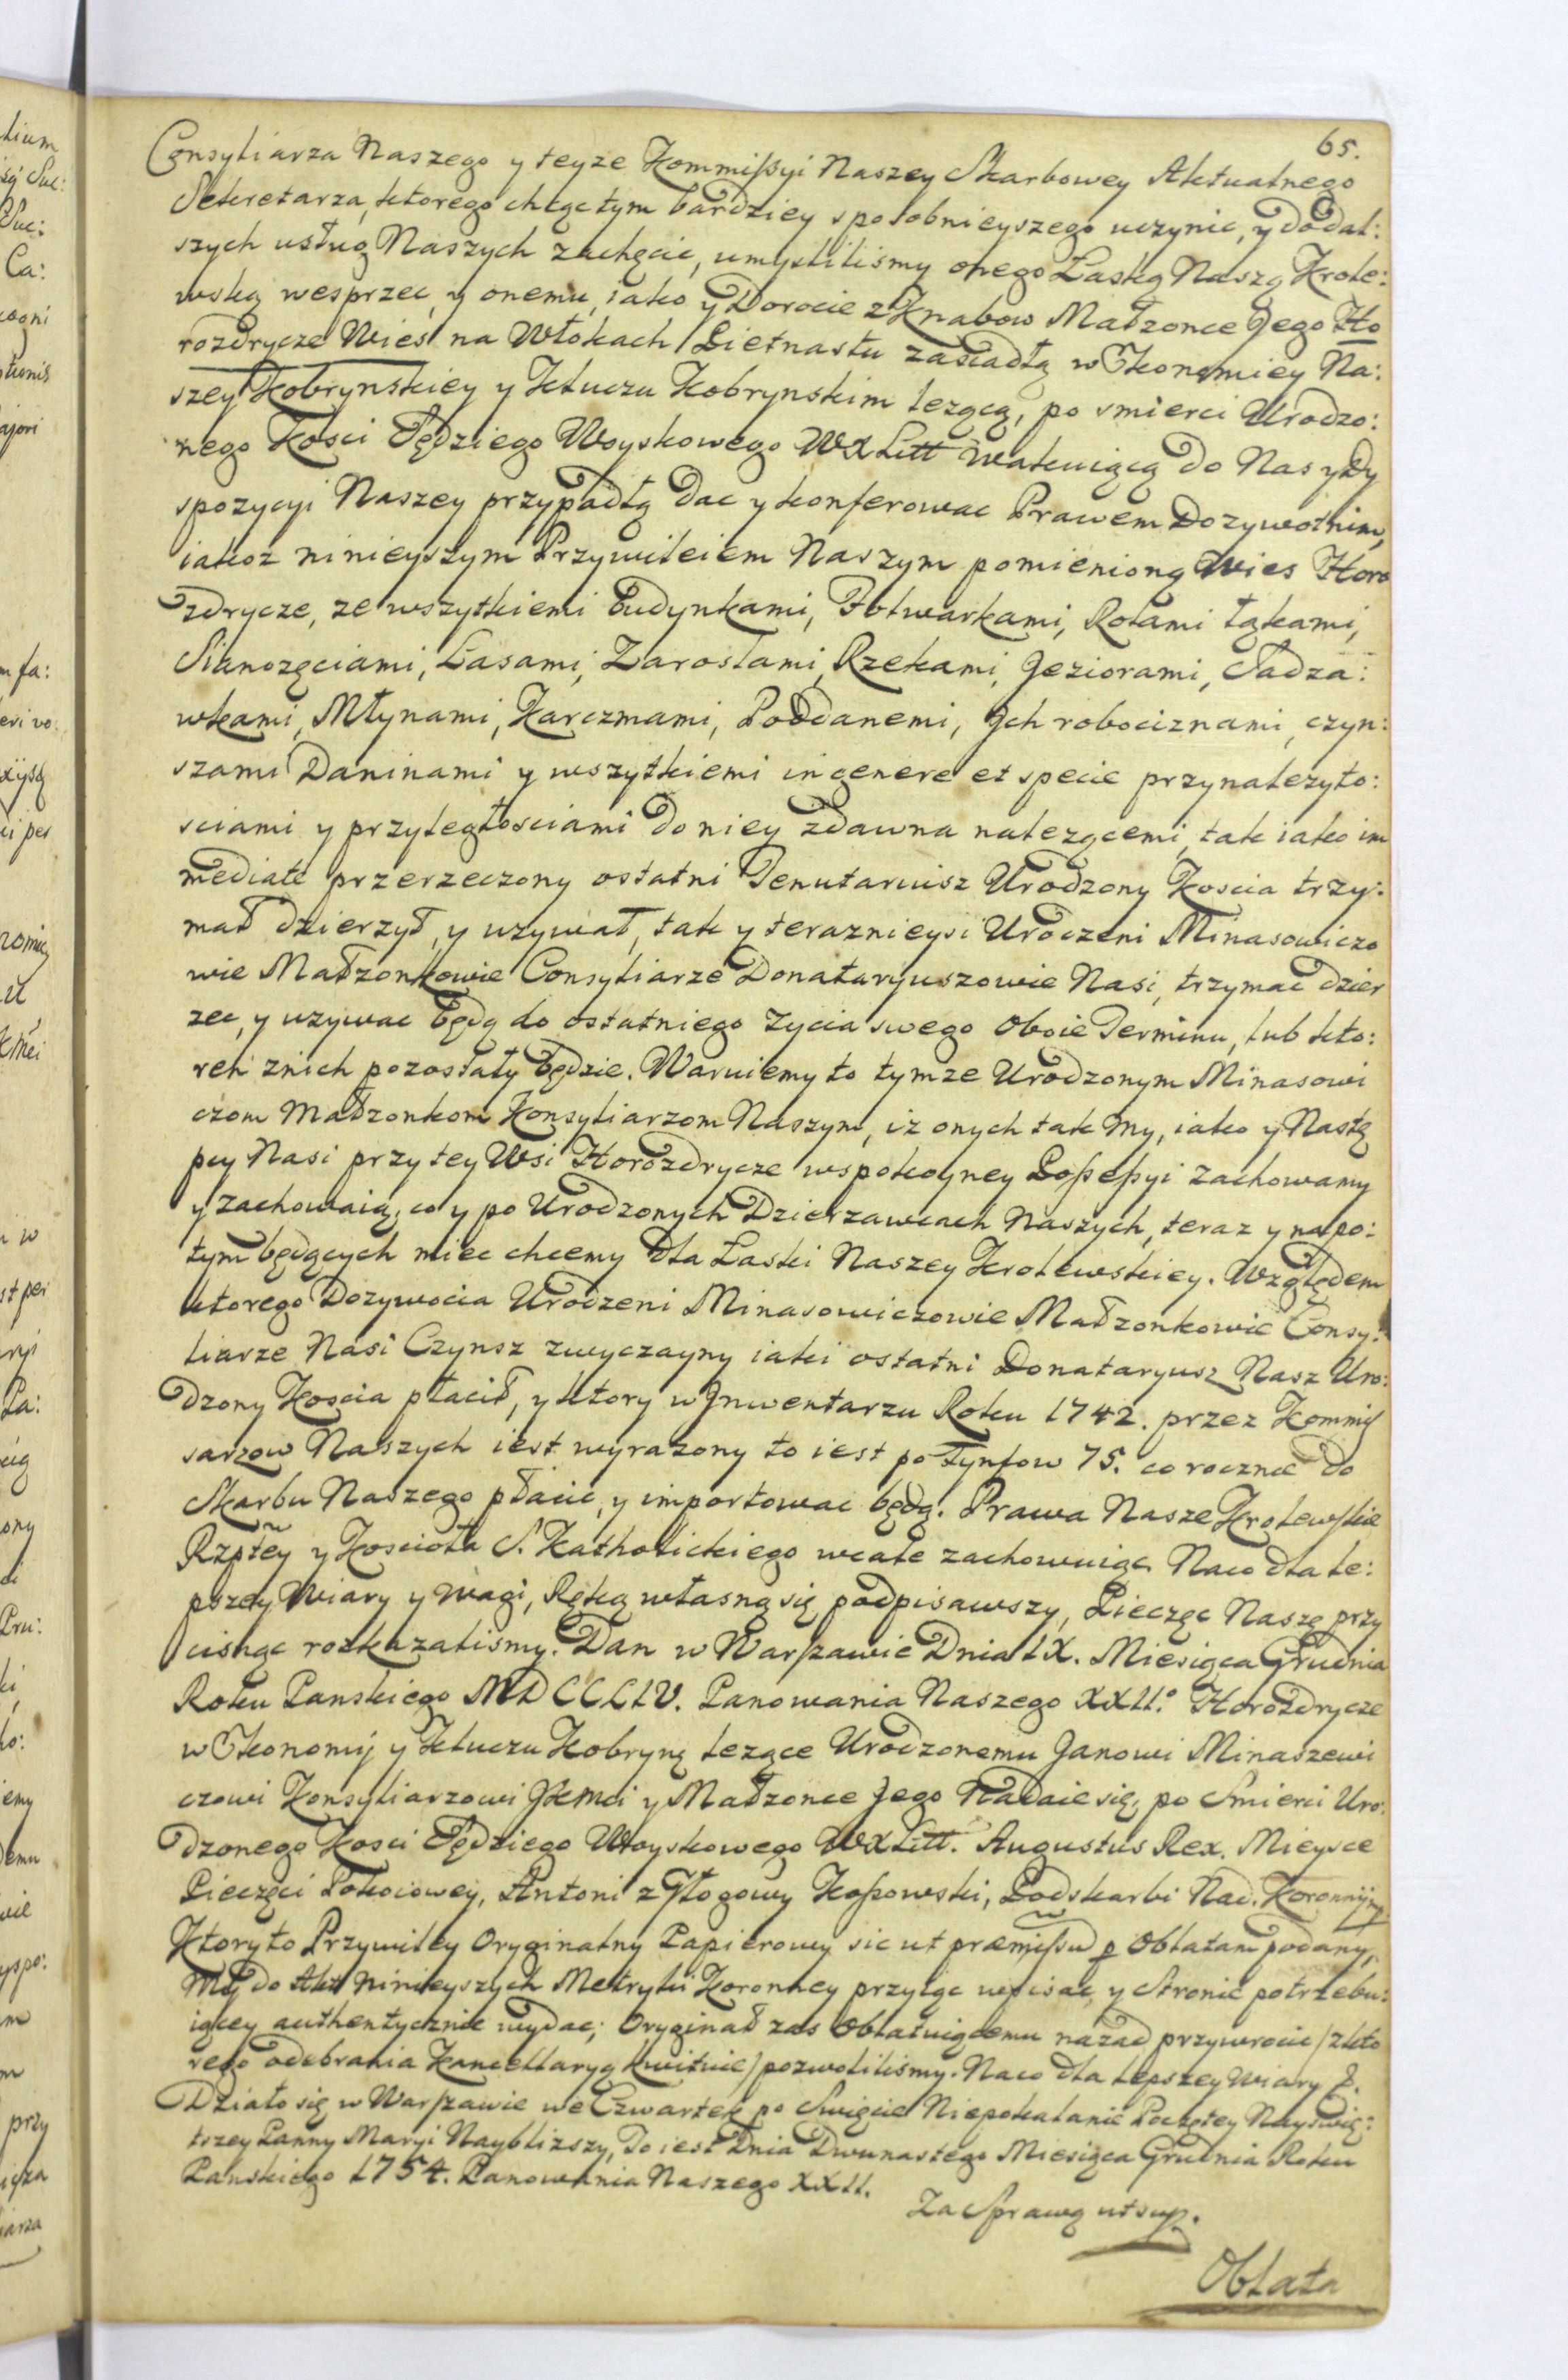 65.
Consyliarza Naszego y teyze Kommissyi Naszey Skarbowey Aktualnego
Sekretarza, ktorego chcąc tym bardziey sposobnieyszego uczynic, y do dal:
szych usług Naszych zachęcic, umyslilismy onego Łaską Naszą Krole:
wską wesprzec, y onemu, iako y Dorocie z Knabow Małzonce Jego Ho
rozdrycze Wies na Włokach Pietnastu zasiadłą w Ekonomiey Na:
szey Kobrynskiey y Kluczu Kobrynskim lezącą, po smierci Urodzo:
nego Kosci Sędziego Woyskowego WXLitt wakuiącą do Nas y Dy
spozycyi Naszey przypadłą dac y konferowac Prawem Dozywotnim,
iakoz ninieyszym Przywileiem Naszym pomienioną Wies Horo
zdrycze, ze wszytkiemi Budynkami, Folwarkami, Rolami łąkami,
Sianozęciami, Lasami, Zaroslami, Rzekami, Jeziorami, Sadza:
wkami, Młynami, Karczmami, Poddanemi, Ich robociznami, czyn:
szami Daninami y wszytkiemi in genere et specie przynalezyto:
sciami y przyległosciami do niey zdawna nalezącemi, tak iako im
mediate przerzeczony ostatni Tenutariusz Urodzony Koscia trzy:
mał dzierzył, y uzywał, tak y teraznieysi Urodzeni Minasowiczo
wie Małzonkowie Consyliarze Donataryuszowie Nasi, trzymac dzier
zec, y uzywac będą do ostatniego zycia swego oboie Terminu, lub kto:
reh z nich pozostały będzie. Waruiemy to tymze Urodzonym Minasowi
czom Małzonkom Konsyliarzom Naszym, iz onych tak My, iako y Nastę
pcy Nasi przy tey Wsi Horozdrycze wspokoyney Possessyi zachowamy
y zachowaią, co y po Urodzonych Dzierzawcach Naszych, teraz y napo:
tym będących miec chcemy dla Łaski Naszey Krolewskiey. Względem
ktorego Dozywocia Urodzeni Minasowiczowie Małzonkowie Consy:
liarze Nasi Czynsz zwyczayny iaki ostatni Donataryusz Nasz Uro:
dzony Koscia płacił, y ktory w Inwentarzu Roku 1742. przez Kommis
sarzow Naszych iest wyrazony to iest po Tynfow 75. co rocznie do
Skarbu Naszego płacic, y importowac będą. Prawa Nasze Krolewskie
Rzpłtey y Koscioła S. Katholickiego wcale zachowuiąc. Na co dla le:
pszey Wiary y wagi, Ręką własną się podpisawszy, Pieczęc Naszę przy
cisnąc rozkazalismy. Dan w Warszawie Dnia IX. Miesiąca Grudnia
Roku Panskiego MDCCLIV. Panowania Naszego XXII.° Horozdrycze
w Ekonomij y Kluczu Kobryną lezące Urodzonemu Janowi Minaszewi
czowi Konsyliarzowi JKMci y Małzonce Jego Nadaie się, po Smierci Uro:
dzonego Kosci Sędziego Woyskowego WXLitt. Augustus Rex. Mieysce
Pieczęci Pokoiowey, Antoni z Głogowy Kossowski, Podskarbi Nad. Koronnym
Ktory to Przywiley Oryginalny Papierowy sic ut præmissu p Oblatam podany,
My do Akt Ninieyszych Metryki Koronney przyiąc wpisac, y Stronie potrzebu:
iącey authentycznie wydac; Oryginał zas Oblatuiącemu nazad przywrocic / z kto
rego odebrania Kancellaryą kwituie / pozwolilismy. Na co dla lepszey Wiary &.
Działo się w Warszawie we Czwartek po Swięcie Niepokalanie Poczętey Nayswię:
trzey Panny Maryi Nayblizszy, To iest Dnia Dwunastego Miesiąca Grudnia Roku
Panskiego 1754. Panowania Naszego XXII.
Za Sprawą ut sup.
Oblata